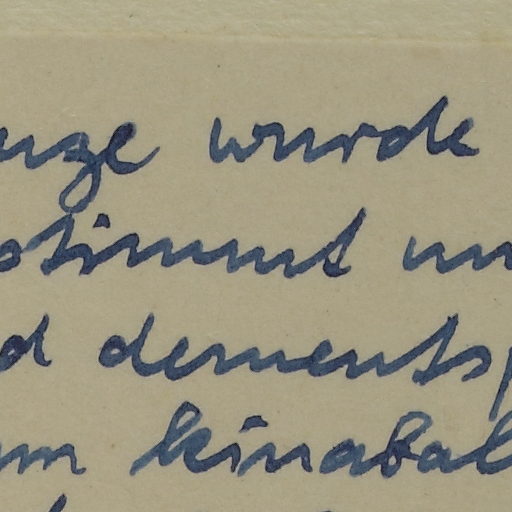 uze wurde
stimmt un
d dements
um kinabal